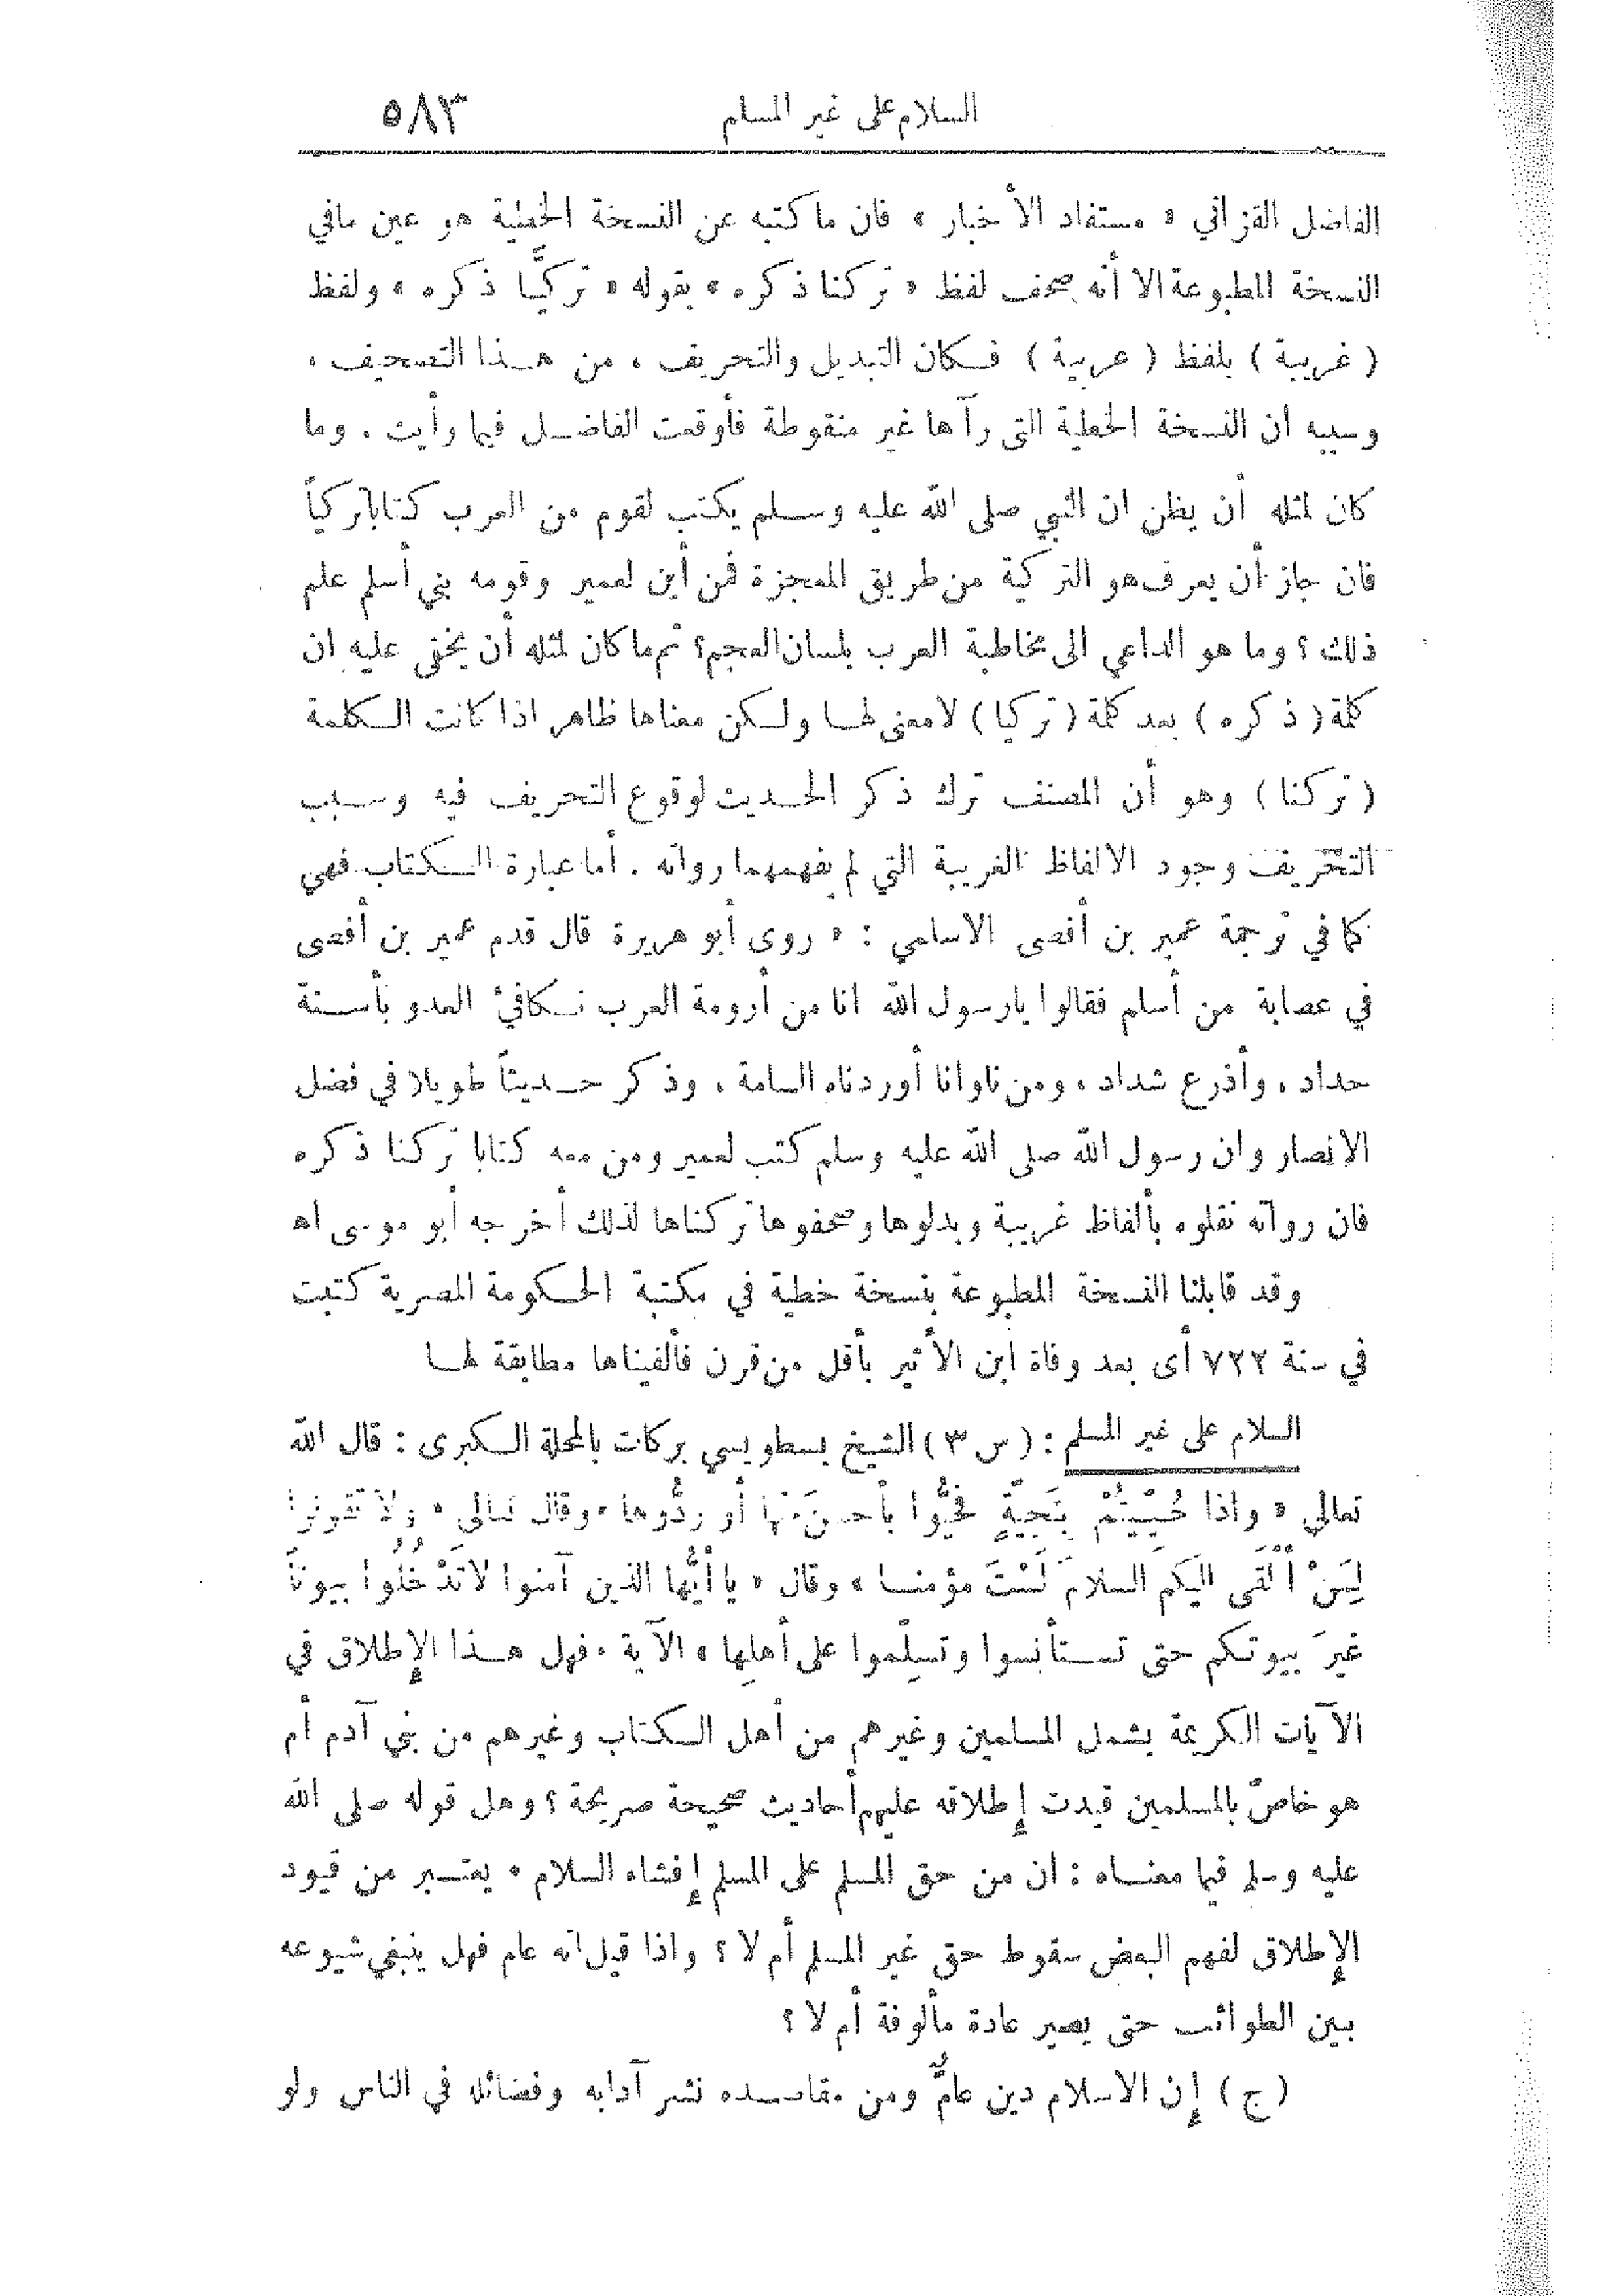 السلام على غير المسلم ٥٨٣
الفاضل القزاني « مستفاد الأخبار » فان ما كتبه عن النسخة الخطية هو عين مافي
النسخة المطبوعة الا أنه صحف لفظ « تركنا ذكره » بقوله « تركيًّا ذكره » ولفظ
( غريبة ) بلفظ ( عربية ) فكان التبديل والتحريف ، من هذا التصحيف ،
وسببه ان النسخة الخطية التي رآها غير منقوطة فأوقعت الفاضل فيما رأيت . وما
كان لمثله أن يظن ان النبي صلى الله عليه وسلم يكتب لقوم من العرب كتاباً تركياً
فان جاز أن يعرف هو التركية من طريق المعجزة فمن أين لعمير وقومه بني أسلم علم
ذلك ؟ وما هو الداعي الى مخاطبة العرب بلسان العجم؟ ثم ما كان لمثله أن يخفى عليه ان
كلمة ( ذكره ) بعد كلمة ( تركيا ) لامعنى لها ولكن معناها ظاهر اذا كانت الكلمة
( تركنا ) وهو أن المصنف ترك ذكر الحديث لوقوع التحريف فيه وسبب
التحريف وجود الالفاظ الغريبة التي لم يفهمهما رواته . أما عبارة الكتاب فهي
كما في ترجمة عمير بن أفصى الاسلمي : « روى أبو هريرة قال قدم عمير بن أفصى
في عصابة من أسلم فقالوا يارسول الله انا من أرومة العرب نكافئ العدو بأسنة
حداد ، وأذرع شداد ، ومن ناوانا أوردناه السامة ، وذكر حديثاً طويلا في فضل
الانصار وان رسول الله صلى الله عليه وسلم كتب لعمير ومن معه كتابا تركنا ذكره
فان رواته نقلوه بألفاظ غريبة وبدلوها وصحفوها تركناها لذلك أخرجه أبو موسى اه
وقد قابلنا النسخة المطبوعة بنسخة خطية في مكتبة الحكومة المصرية كتبت
في سنة ٧٢٢ أى بعد وفاة ابن الأثير بأقل من قرن فألفيناها مطابقة لها
السلام على غير المسلم : ( س ٣ ) الشيخ بسطويسي بركات بالمحلة الكبرى : قال الله
تعالى « واذا حُيِّيتُمْ بِتَحِيَّةٍ فَحَيُّوا بأحسنَ منها أو رُدُّوها » وقال تعالى « ولا تَقُولُوا
لِمَنْ أَلْقَى اليكم السلامَ لَسْتَ مؤمنا » وقال « يا أَيُّها الذين آمنوا لاتَدْخُلُوا بيوتاً
غيرَ بيوتكم حتى تستأنسوا وتسلِّموا على أهلِها » الآية . فهل هذا الإطلاق في
الآيات الكريمة يشمل المسلمين وغيرهم من أهل الكتاب وغيرهم من بني آدم أم
هو خاصّ بالمسلمين قيدت إطلاقه عليهم أحاديث صحيحة صريحة ؟ وهل قوله صلى الله
عليه وسلم فيما معناه : ان من حق المسلم على المسلم إفشاه السلام ، يعتبر من قيود
الإطلاق لفهم البعض سقوط حق غير المسلم أم لا ؟ واذا قيل انه عام فهل ينبغي شيوعه
بين الطوائف حتى يصير عادة مألوفة أم لا ؟
( ج ) إن الاسلام دين عامٌّ ومن مقاصده نشر آدابه وفضائله في الناس ولو